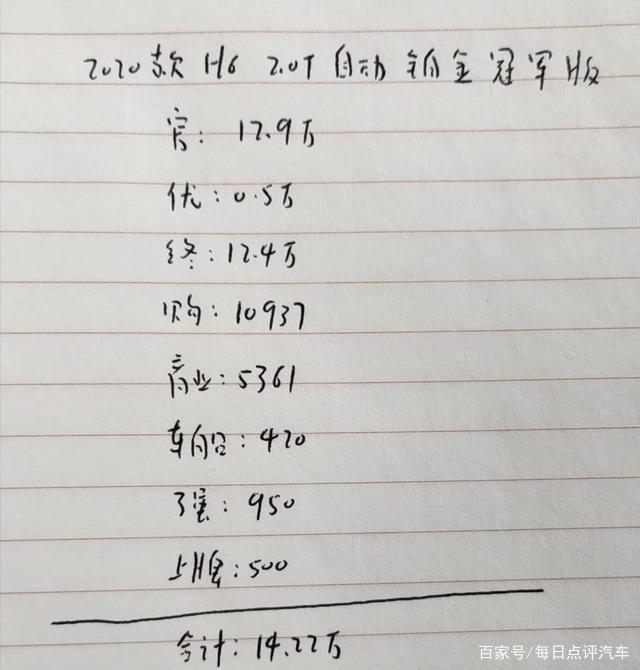 2020款 H6 2.0T 自动 铂金冠军版
官: 12.9万
优: 0.5万
终: 12.4万
购: 10937
商业: 5361
车船: 420
子强: 950
上牌: 500
合计: 14.22万
百家号/每日点评汽车